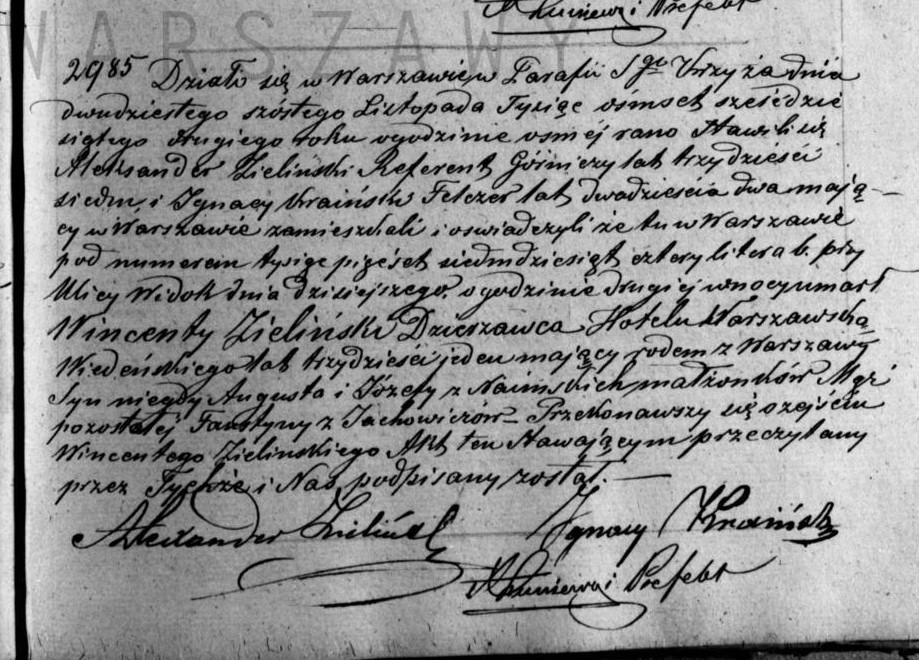 Kuniewski Prefekt
WARSZAWY
2985 Działo się w Warszawie w Parafii Sgo Krzyża dnia
dwudziestego szóstego Listopada Tysiąc ośmset sześćdzie
siątego drugiego roku o godzinie osméj rano Stawili się
Aleksander Zieliński Referent Górniczy lat trzydzieści
siedm i Ignacy Kraiński Felczer lat dwadzieścia dwa mają
cy w Warszawie zamieszkali i oswiadczyli że tu w Warszawie
pod numerem tysiąc pięćset siedmdziesiąt cztery litera b. przy
Ulicy Widok dnia dzisiejszego o godzinie drugiej w nocy umarł
Wincenty Zieliński Dzierzawca Hotelu Warszawsko
Wiedeńskiego lat trzydzieści jeden mający rodem z Warszawy
Syn niegdy Augusta i Józefy z Naimskich małżonków
pozostałej Faustyny z Jachowiczów – Przekonawszy się o zejściu
Wincentego Zielinskiego Akt ten Stawającym przeczytany
przez Tychże i Nas podpisany został. —
Alexander Zieliński Ignacy Kraiński
Prefekt